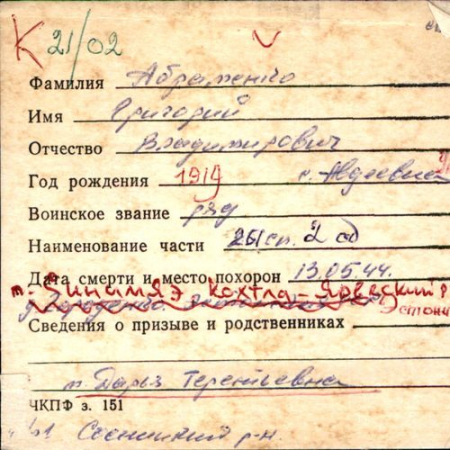 К 21/02
Фамилия Абраменко
Имя Григорий
Отчество Владимирович
Год рождения 1919 с. Авдеевка
Воинское звание ряд
Наименование части 261 сп. 2 сд
Дата смерти и место похорон 13.05.44.
Кохтла-Ярвеский р
Эстони
Сведения о призыве и родственниках
м Дарья Терентьевна
ЧКПФ з. 151
Сосницкий р-н.